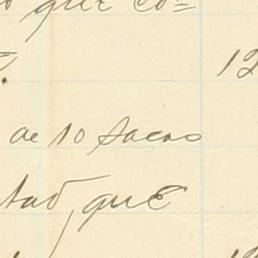 que co=
12
de 10 sacos
tad, que